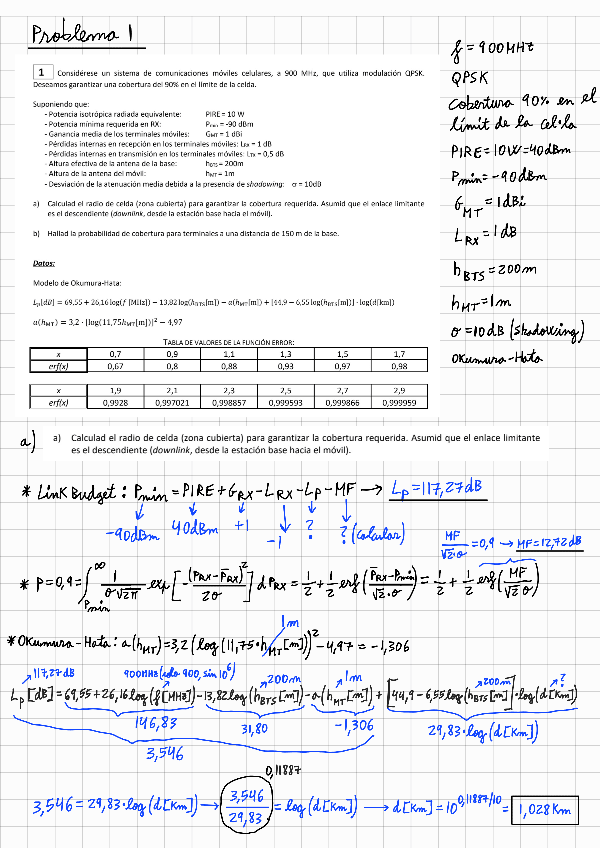 Problema 1
1 Considérese un sistema de comunicaciones móviles celulares, a 900 MHz, que utiliza modulación QPSK.
Deseamos garantizar una cobertura del 90% en el límite de la celda.
Suponiendo que:
- Potencia isotrópica radiada equivalente: PIRE = 10 W
- Potencia mínima requerida en RX: Pmin = -90 dBm
- Ganancia media de los terminales móviles: GMT = 1 dBi
- Pérdidas internas en recepción en los terminales móviles: LRX = 1 dB
- Pérdidas internas en transmisión en los terminales móviles: LTX = 0,5 dB
- Altura efectiva de la antena de la base: hBTS = 200m
- Altura de la antena del móvil: hMT = 1m
- Desviación de la atenuación media debida a la presencia de shadowing: σ = 10dB
a) Calculad el radio de celda (zona cubierta) para garantizar la cobertura requerida. Asumid que el enlace limitante
es el descendiente (downlink, desde la estación base hacia el móvil).
b) Hallad la probabilidad de cobertura para terminales a una distancia de 150 m de la base.
Datos:
Modelo de Okumura-Hata:
Lp[dB] = 69,55 + 26,16 log(f [MHz]) − 13,82 log(hBTS[m]) − a(hMT[m]) + [44,9 − 6,55 log(hBTS[m])] · log(d[km])
a(hMT) = 3,2 · [log(11,75hMT[m])]² − 4,97
TABLA DE VALORES DE LA FUNCIÓN ERROR:
x 0,7 0,9 1,1 1,3 1,5 1,7
erf(x) 0,67 0,8 0,88 0,93 0,97 0,98
x 1,9 2,1 2,3 2,5 2,7 2,9
erf(x) 0,9928 0,997021 0,998857 0,999593 0,999866 0,999959
f = 900MHz
QPSK
Cobertura 90% en el
límite de la celda
PIRE = 10W = 40dBm
Pmin = -90dBm
GMT = 1dBi
LRX = 1dB
hBTS = 200m
hMT = 1m
σ = 10dB (shadowing)
Okumura-Hata
a) a) Calculad el radio de celda (zona cubierta) para garantizar la cobertura requerida. Asumid que el enlace limitante
es el descendiente (downlink, desde la estación base hacia el móvil).
* Link Budget: Pmin = PIRE + GRX - LRX - LP - MF → LP = 117,27dB
-90dBm 40dBm +1 -1 ? ? (calcular)
MF/√2·σ = 0,9 → MF = 12,72dB
* P = 0,9 = ∫Pmin^∞ 1/σ√2π exp[-(PRX - P̄RX)²/2σ] dPRX = 1/2 + 1/2 erf(P̄RX - Pmin/√2·σ) = 1/2 + 1/2 erf(MF/√2 σ)
1m
* Okumura-Hata: a(hMT) = 3,2(log(11,75·hMT[m]))² - 4,97 = -1,306
117,27dB 900MHz (solo 900, sin 10⁶) 200m 1m 200m ?
Lp[dB] = 69,55 + 26,16 log(f[MHz]) - 13,82 log(hBTS[m]) - a(hMT[m]) + [44,9 - 6,55 log(hBTS[m])]·log(d[Km])
146,83 31,80 -1,306 29,83·log(d[Km])
3,546
0,11887
3,546 = 29,83·log(d[Km]) → 3,546/29,83 = log(d[Km]) → d[Km] = 10^0,11887/10 = 1,028Km